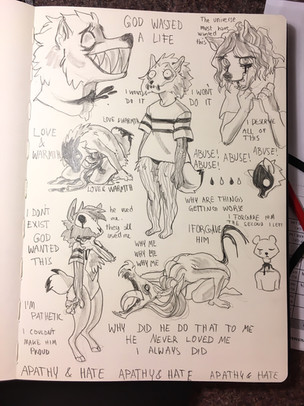 GOD WASED
A LIFE
The universe
must have
wanted
this
I WON'T
DO IT
I WON'T
DO IT
I DESERVE
ALL OF
THIS
LOVE
&
WARMTH
LOVE & WARMTH
LOVE & WARMTH
ABUSE!
ABUSE!
ABUSE!
ABUSE!
WHY ARE THINGS
GETTING WORSE
I DON'T
EXIST
GOD
WANTED
THIS
he used me.
they all
used me
WHY ME
WHY ME
WHY ME
I FORGAVE
HIM
I FORGAVE HIM
THE SECOND I LEFT
I'M
PATHETIC
I COULDN'T
MAKE HIM
PROUD
WHY DID HE DO THAT TO ME
HE NEVER LOVED ME
I ALWAYS DID
APATHY & HATE APATHY & HATE APATHY & HATE